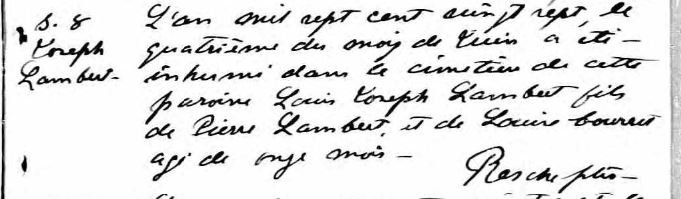 S. 8
Joseph
Lambert-
L'an mil sept cent vingt sept, le
quatrième du mois de Juin a été
inhumé dans le cimetière de cette
paroisse Louis Joseph Lambert fils
de Pierre Lambert, et de Louise
agé de onze mois -
ptre-